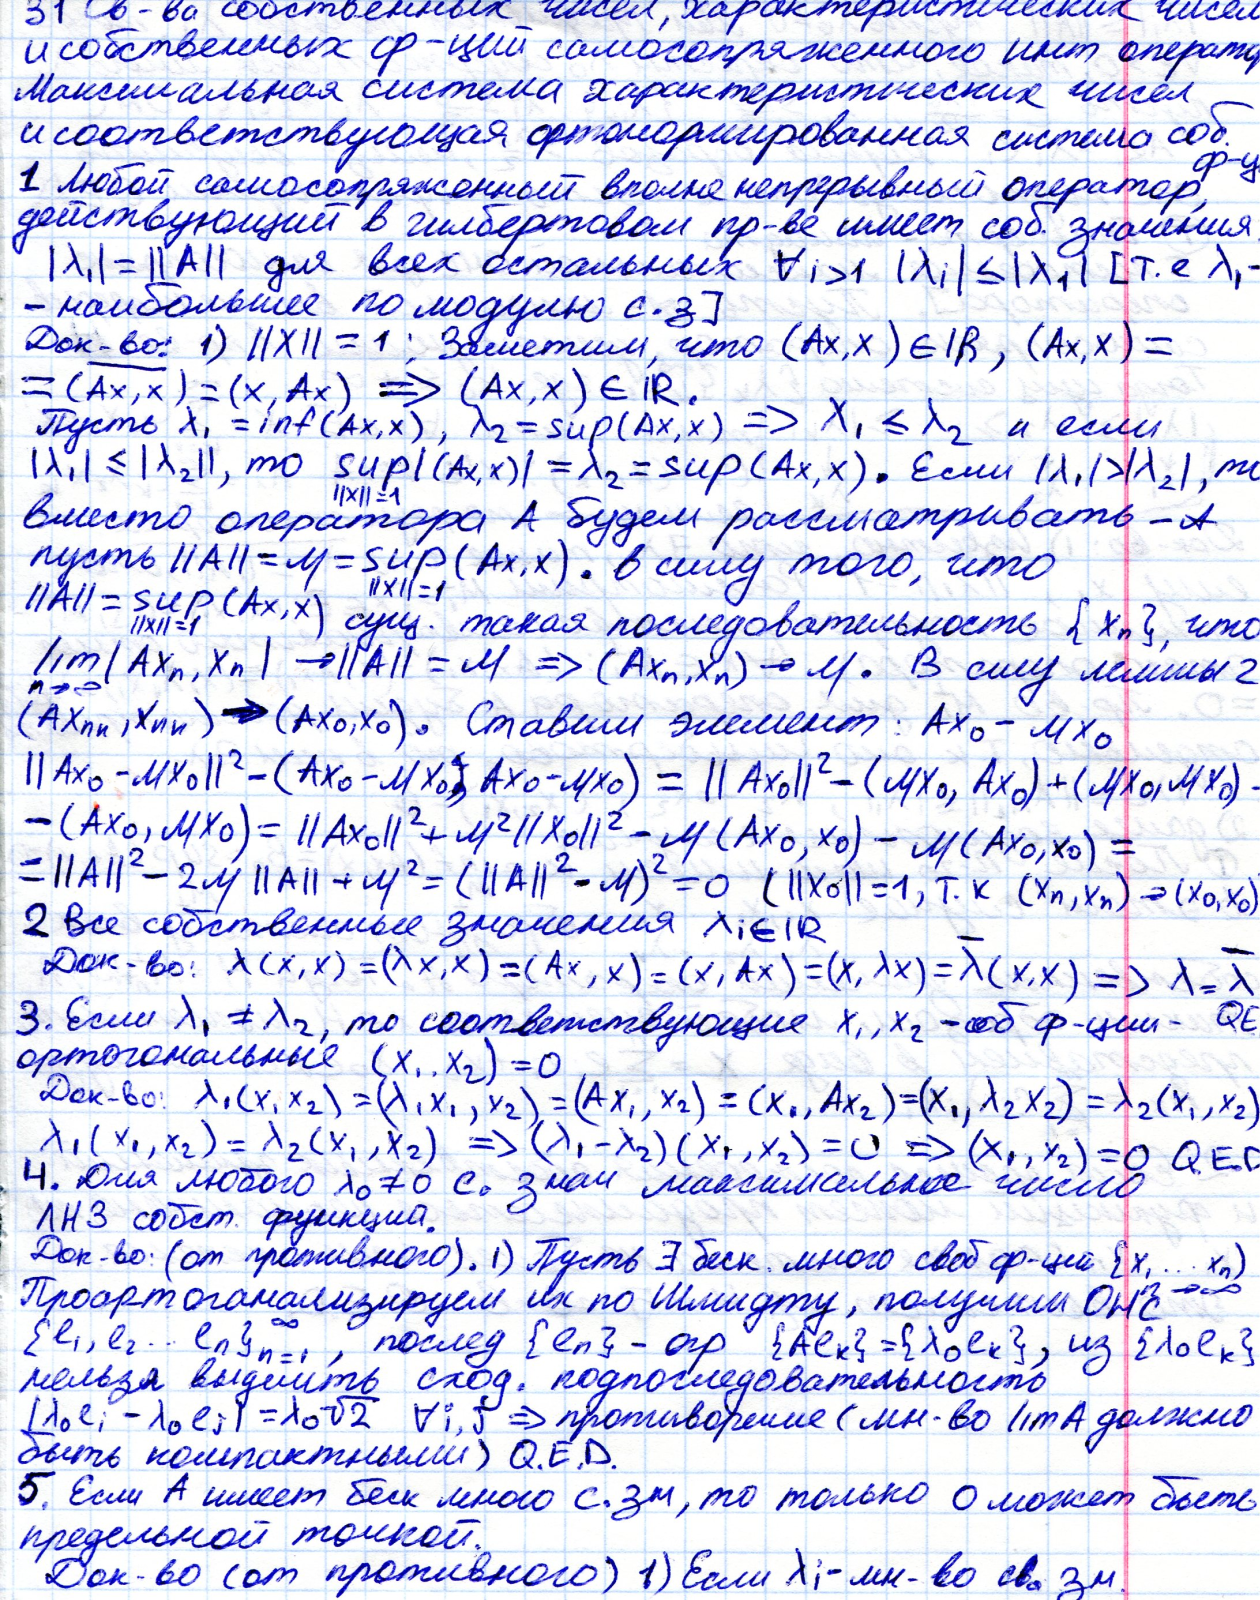 31 Св-ва собственных чисел, характеристических чисел
и собственных ф-ций самосопряженного инт оператор
Максимальная система характеристических чисел
и соответствующая ортонормированная система соб.
ф-ц
1 Любой самосопряженный вполне непрерывный оператор,
действующий в гильбертовом пр-ве имеет соб. значения
|λ₁| = ||A|| для всех остальных ∀i>1 |λi| ≤ |λ₁| [т.е λ₁-
- наибольшее по модулю с.з]
Док-во: 1) ||X|| = 1; Заметим, что (Ax,x) ∈ ℝ, (Ax,x) =
= (Ax,x) = (x, Ax) => (Ax,x) ∈ ℝ.
Пусть λ₁ = inf(Ax,x), λ₂ = sup(Ax,x) => λ₁ ≤ λ₂ и если
|λ₁| ≤ |λ₂||, то sup|(Ax,x)| = λ₂ = sup(Ax,x). Если |λ₁|>|λ₂|, то
||x||=1
вместо оператора A будем рассматривать -A
пусть ||A|| = M = sup(Ax,x). в силу того, что
||x||=1
||A|| = sup(Ax,x) сущ. такая последовательность {xn}, что
||x||=1
lim|Axn, xn| → ||A|| = M => (Axn, xn) → M. В силу леммы 2
n→∞
(Axnk, xnk) → (Ax₀,x₀). Ставим элемент: Ax₀ - Mx₀
||Ax₀ - Mx₀||² - (Ax₀ - Mx₀, Ax₀ - Mx₀) = ||Ax₀||² - (Mx₀, Ax₀) + (Mx₀, Mx₀) -
- (Ax₀, Mx₀) = ||Ax₀||² + M²||x₀||² - M(Ax₀, x₀) - M(Ax₀, x₀) =
= ||A||² - 2M||A|| + M² = (||A||² - M)² = 0 (||x₀|| = 1, т.к (xn, xn) → (x₀, x₀)
2 Все собственные значения λi ∈ ℝ
Док-во: λ(x,x) = (λx,x) = (Ax,x) = (x,Ax) = (x,λx) = λ̄(x,x) => λ = λ̄
QE
3. Если λ₁ ≠ λ₂, то соответствующие x₁, x₂ - соб ф-ции -
ортогональные (x₁, x₂) = 0
Док-во: λ₁(x₁x₂) = (λ₁x₁, x₂) = (Ax₁, x₂) = (x₁, Ax₂) = (x₁, λ₂x₂) = λ₂(x₁, x₂)
λ₁(x₁, x₂) = λ₂(x₁, x₂) => (λ₁-λ₂)(x₁, x₂) = 0 => (x₁, x₂) = 0 Q.E.D
4. Для любого λ₀ ≠ 0 с. знач максимальное число
ЛНЗ собст. функций.
Док-во: (от противного). 1) Пусть ∃ беск. много своб ф-ций {x₁ ... xn)
n→∞
Проортогонализируем их по Шмидту, получим ОНС
{e₁, e₂ ... en}ₙ₌₁^∞, послед {en} - огр {Aek} = {λ₀ek}, из {λ₀ek}
нельзя выделить сход. подпоследовательность
|λ₀ei - λ₀ej| = λ₀√2 ∀i,j => противорение (мн-во ImA должно
быть компактными) Q.E.D.
5. Если A имеет беск много с.зн, то только 0 может быть
предельной точкой.
Док-во (от противного) 1) Если λi - мн-во св. зн.